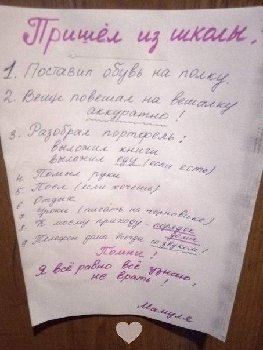 Пришёл из школы:
1. Поставил обувь на полку.
2. Вещи повешал на вешалку
аккуратно!
3. Разобрал портфель:
выложил книги
выложил еду (если есть)
4. Помыл руки
5. Поел (если хочешь)
6. Отдых
7. Уроки (писать на черновике)
8. К моему приходу - порядок
дома
9. Телефон дома всегда со звуком!
Помни!
Я всё равно всё узнаю,
не врать!
Мамуля